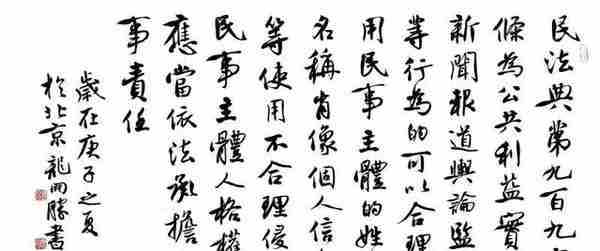 民法典第九百九
條為公共利益實
新聞報道輿論監
等行為的可以合
用民事主體的姓
名稱肖像個人信
等使用不合理侵
民事主體人格權
應當依法承擔
事責任
歲在庚子之夏
於北京龍開勝書